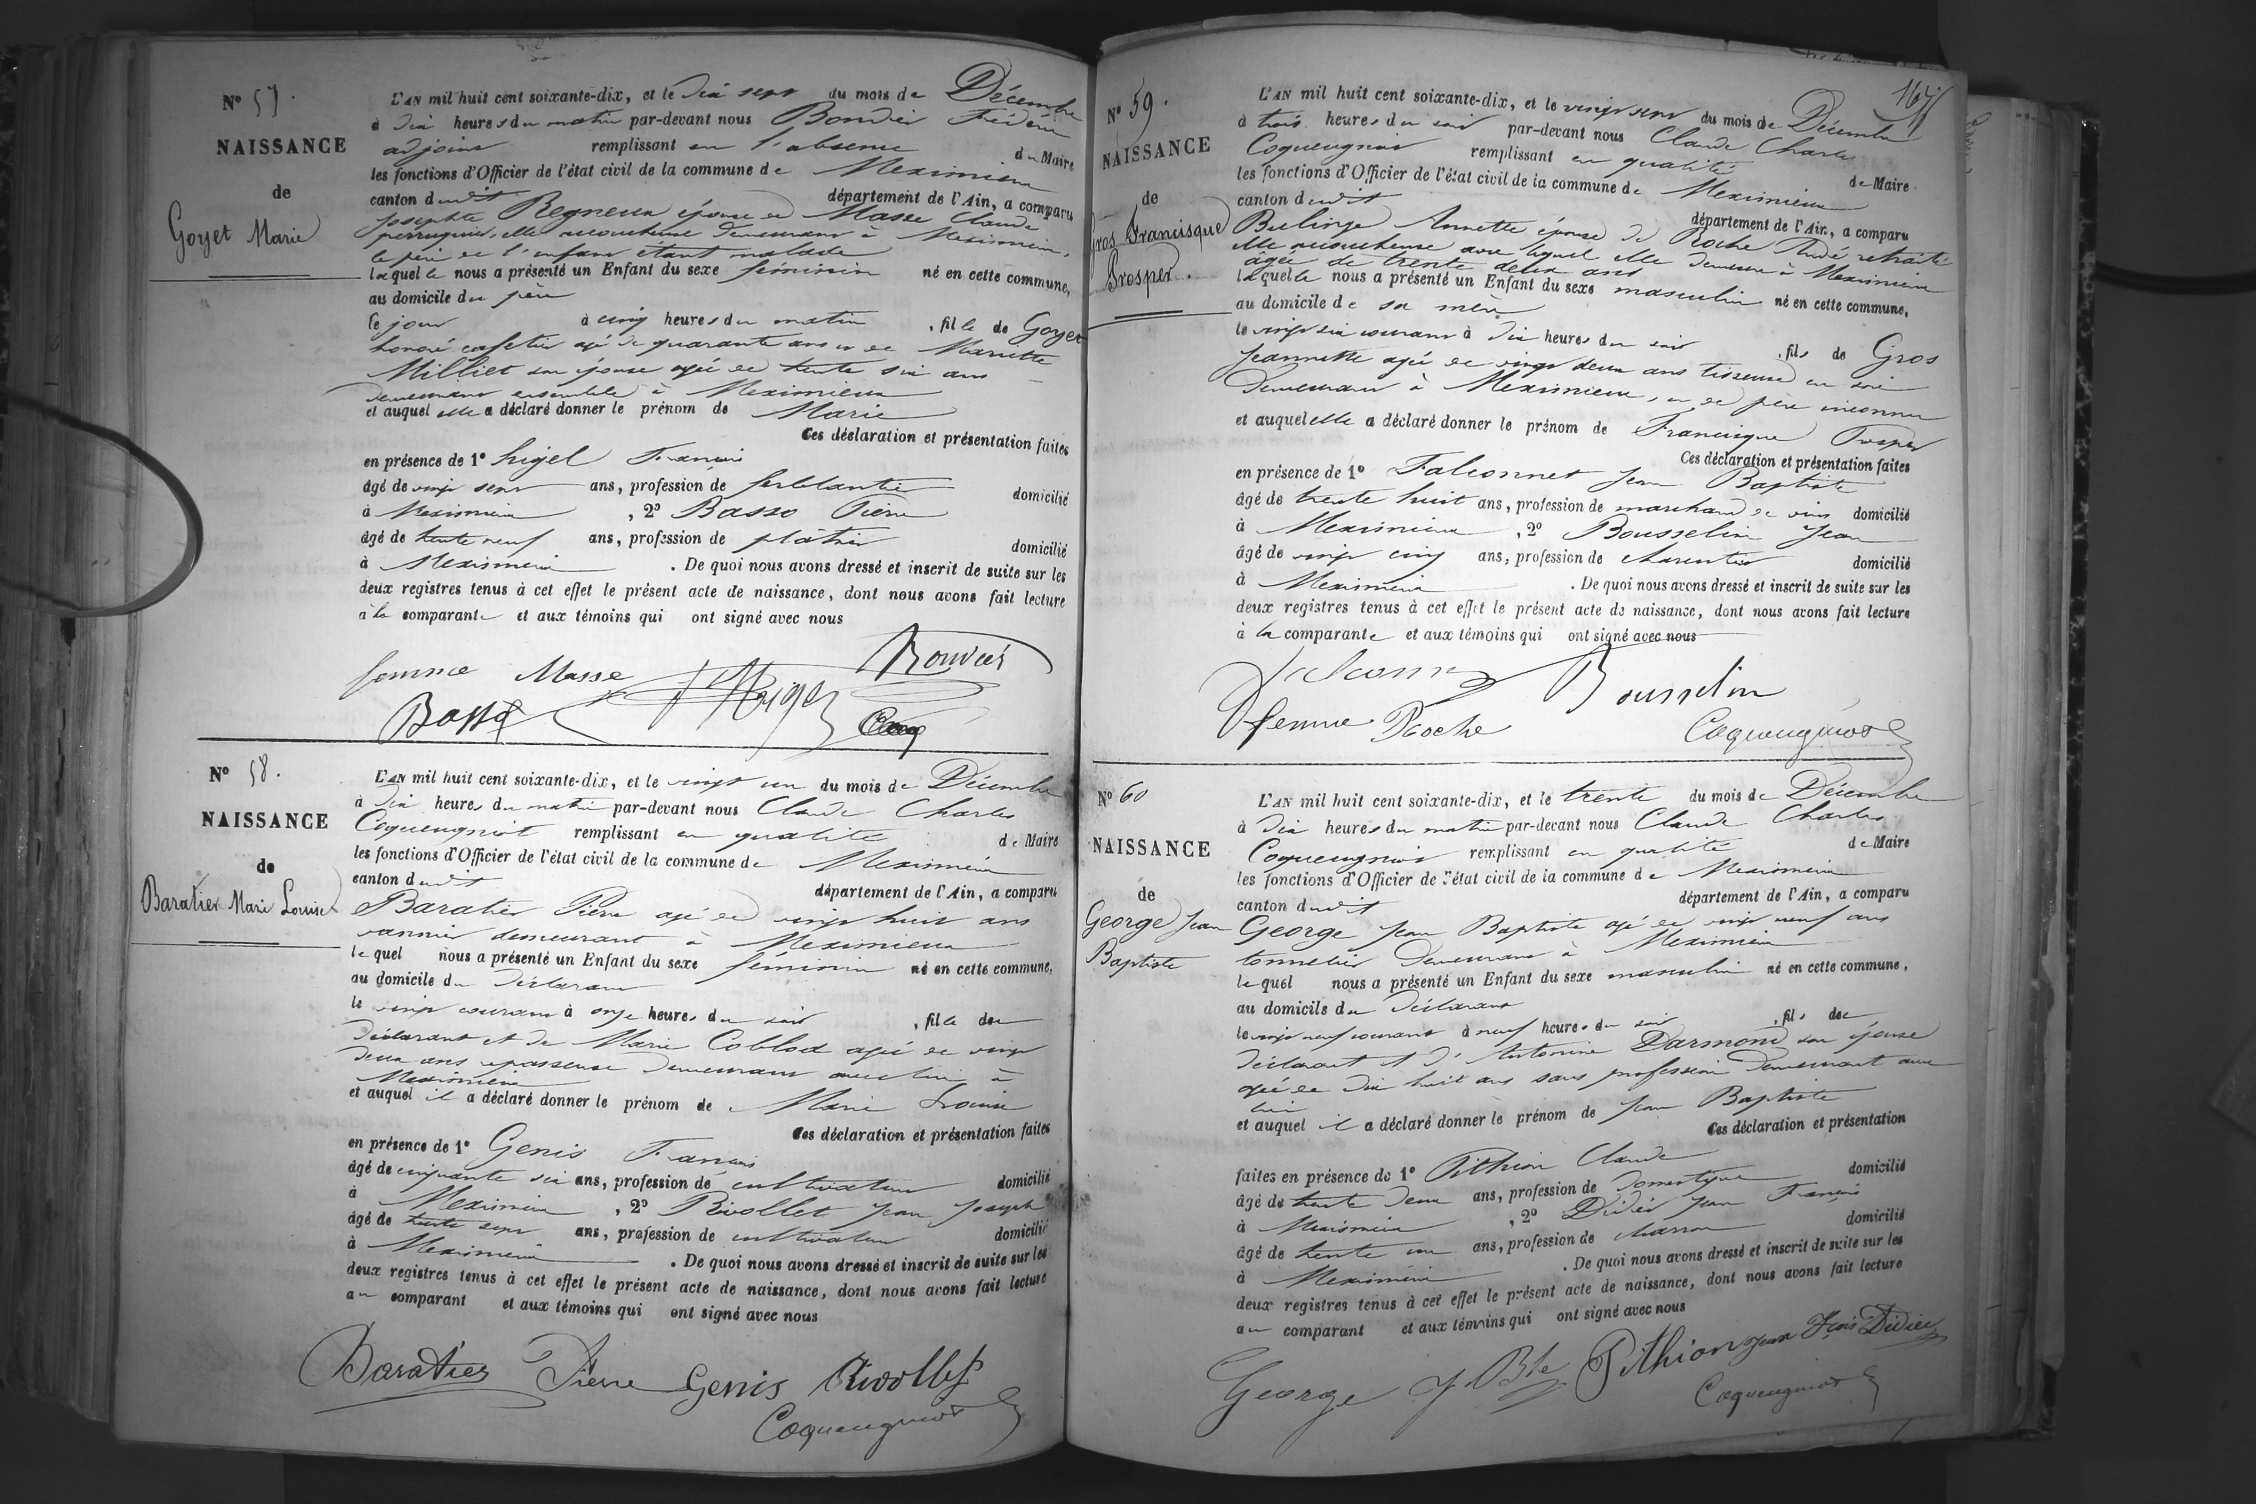 N° 57.
NAISSANCE
de
Goyet Marie
L'AN mil huit cent soixante-dix, et le dix sept du mois de Décembre
à dix heures du matin par-devant nous Bouvier Frédéric
adjoint remplissant en l'absence du Maire
les fonctions d'Officier de l'état civil de la commune de Meximieux
canton dudit département de l'Ain, a comparu
Josephte Regneux épouse de Masse Claude
perruquier, elle accoucheuse demeurant à Meximieux,
le père de l'enfant étant malade
laquelle nous a présenté un Enfant du sexe féminin né en cette commune,
au domicile du père
le jour à cinq heures du matin, fille de Goyet
honoré cafetier agé de quarante ans et de Mariette
Milliet son épouse agée de trente six ans
demeurant ensemble à Meximieux
et auquel elle a déclaré donner le prénom de Marie
Ces déclaration et présentation faites
en présence de 1° higel Francois
âgé de vingt sept ans, profession de ferblantier domicilié
à Meximieux, 2° Basso Pierre
âgé de trente neuf ans, profession de plâtrier domicilié
à Meximieux. De quoi nous avons dressé et inscrit de suite sur les
deux registres tenus à cet effet le présent acte de naissance, dont nous avons fait lecture
à la comparante et aux témoins qui ont signé avec nous
femme Masse Bouvier
Basso
N° 58.
NAISSANCE
de
Baratier Marie Louise
L'AN mil huit cent soixante-dix, et le vingt un du mois de Décembre
à dix heures du matin par-devant nous Claude Charles
Coqueugniot remplissant en qualité de Maire
les fonctions d'Officier de l'état civil de la commune de Meximieux
canton dudit département de l'Ain, a comparu
Baratier Pierre agé de vingt huit ans
vannier demeurant à Meximieux
lequel nous a présenté un Enfant du sexe féminin né en cette commune,
au domicile du déclarant
le vingt courant à onze heures du soir, fille du
déclarant et de Marie Coblod agée de vingt
deux ans repasseuse demeurant avec lui à
Meximieux
et auquel il a déclaré donner le prénom de Marie Louise
Ces déclaration et présentation faites
en présence de 1° Genis Francois
âgé de cinquante six ans, profession de cultivateur domicilié
à Meximieux, 2° Rivollet Jean Joseph
âgé de trente sept ans, profession de cultivateur domicilié
à Meximieux. De quoi nous avons dressé et inscrit de suite sur les
deux registres tenus à cet effet le présent acte de naissance, dont nous avons fait lecture
au comparant et aux témoins qui ont signé avec nous
Baratier Pierre Genis Rivollet
Coqueugniot
167
N° 59.
NAISSANCE
de
Gros Francisque
Prosper.
L'AN mil huit cent soixante-dix, et le vingt sept du mois de Décembre
à trois heures du soir par-devant nous Claude Charles
Coqueugniot remplissant en qualité de Maire
les fonctions d'Officier de l'état civil de la commune de Meximieux
canton dudit département de l'Ain, a comparu
Bulinge Annette épouse de Roche André retraité
elle accoucheuse avec lequel elle demeure à Meximieux
agée de trente deux ans
laquelle nous a présenté un Enfant du sexe masculin né en cette commune,
au domicile de sa mère
le vingt six courant à dix heures du soir, fils de Gros
Jeannette agée de vingt deux ans tisseuse en soie
demeurant à Meximieux, et de père inconnu
et auquel elle a déclaré donner le prénom de Francisque Prosper
Ces déclaration et présentation faites
en présence de 1° Falconnet Jean Baptiste
âgé de trente huit ans, profession de marchand de vins domicilié
à Meximieux, 2° Bousselin Jean
âgé de vingt cinq ans, profession de charentier domicilié
à Meximieux. De quoi nous avons dressé et inscrit de suite sur les
deux registres tenus à cet effet le présent acte de naissance, dont nous avons fait lecture
à la comparante et aux témoins qui ont signé avec nous
Bousselin
femme Roche Coqueugniot
N° 60
NAISSANCE
de
George Jean
Baptiste
L'AN mil huit cent soixante-dix, et le trente du mois de Décembre
à dix heures du matin par-devant nous Claude Charles
Coqueugniot remplissant en qualité de Maire
les fonctions d'Officier de l'état civil de la commune de Meximieux
canton dudit département de l'Ain, a comparu
George Jean Baptiste agé de vingt neuf ans
tonnelier demeurant à Meximieux
lequel nous a présenté un Enfant du sexe masculin né en cette commune,
au domicile du déclarant
le vingt neuf courant à neuf heures du soir, fils du
déclarant et d'Antonine Darmond son épouse
agée de dix huit ans sans profession demeurant avec
lui
et auquel il a déclaré donner le prénom de Jean Baptiste
Ces déclaration et présentation
faites en présence de 1° Pithion Claude
âgé de trente deux ans, profession de domestique domicilié
à Meximieux, 2° Didier Jean François
âgé de trente un ans, profession de charron domicilié
à Meximieux. De quoi nous avons dressé et inscrit de suite sur les
deux registres tenus à cet effet le présent acte de naissance, dont nous avons fait lecture
au comparant et aux témoins qui ont signé avec nous
George J Bte Pithion Jean Fçois Didier
Coqueugniot